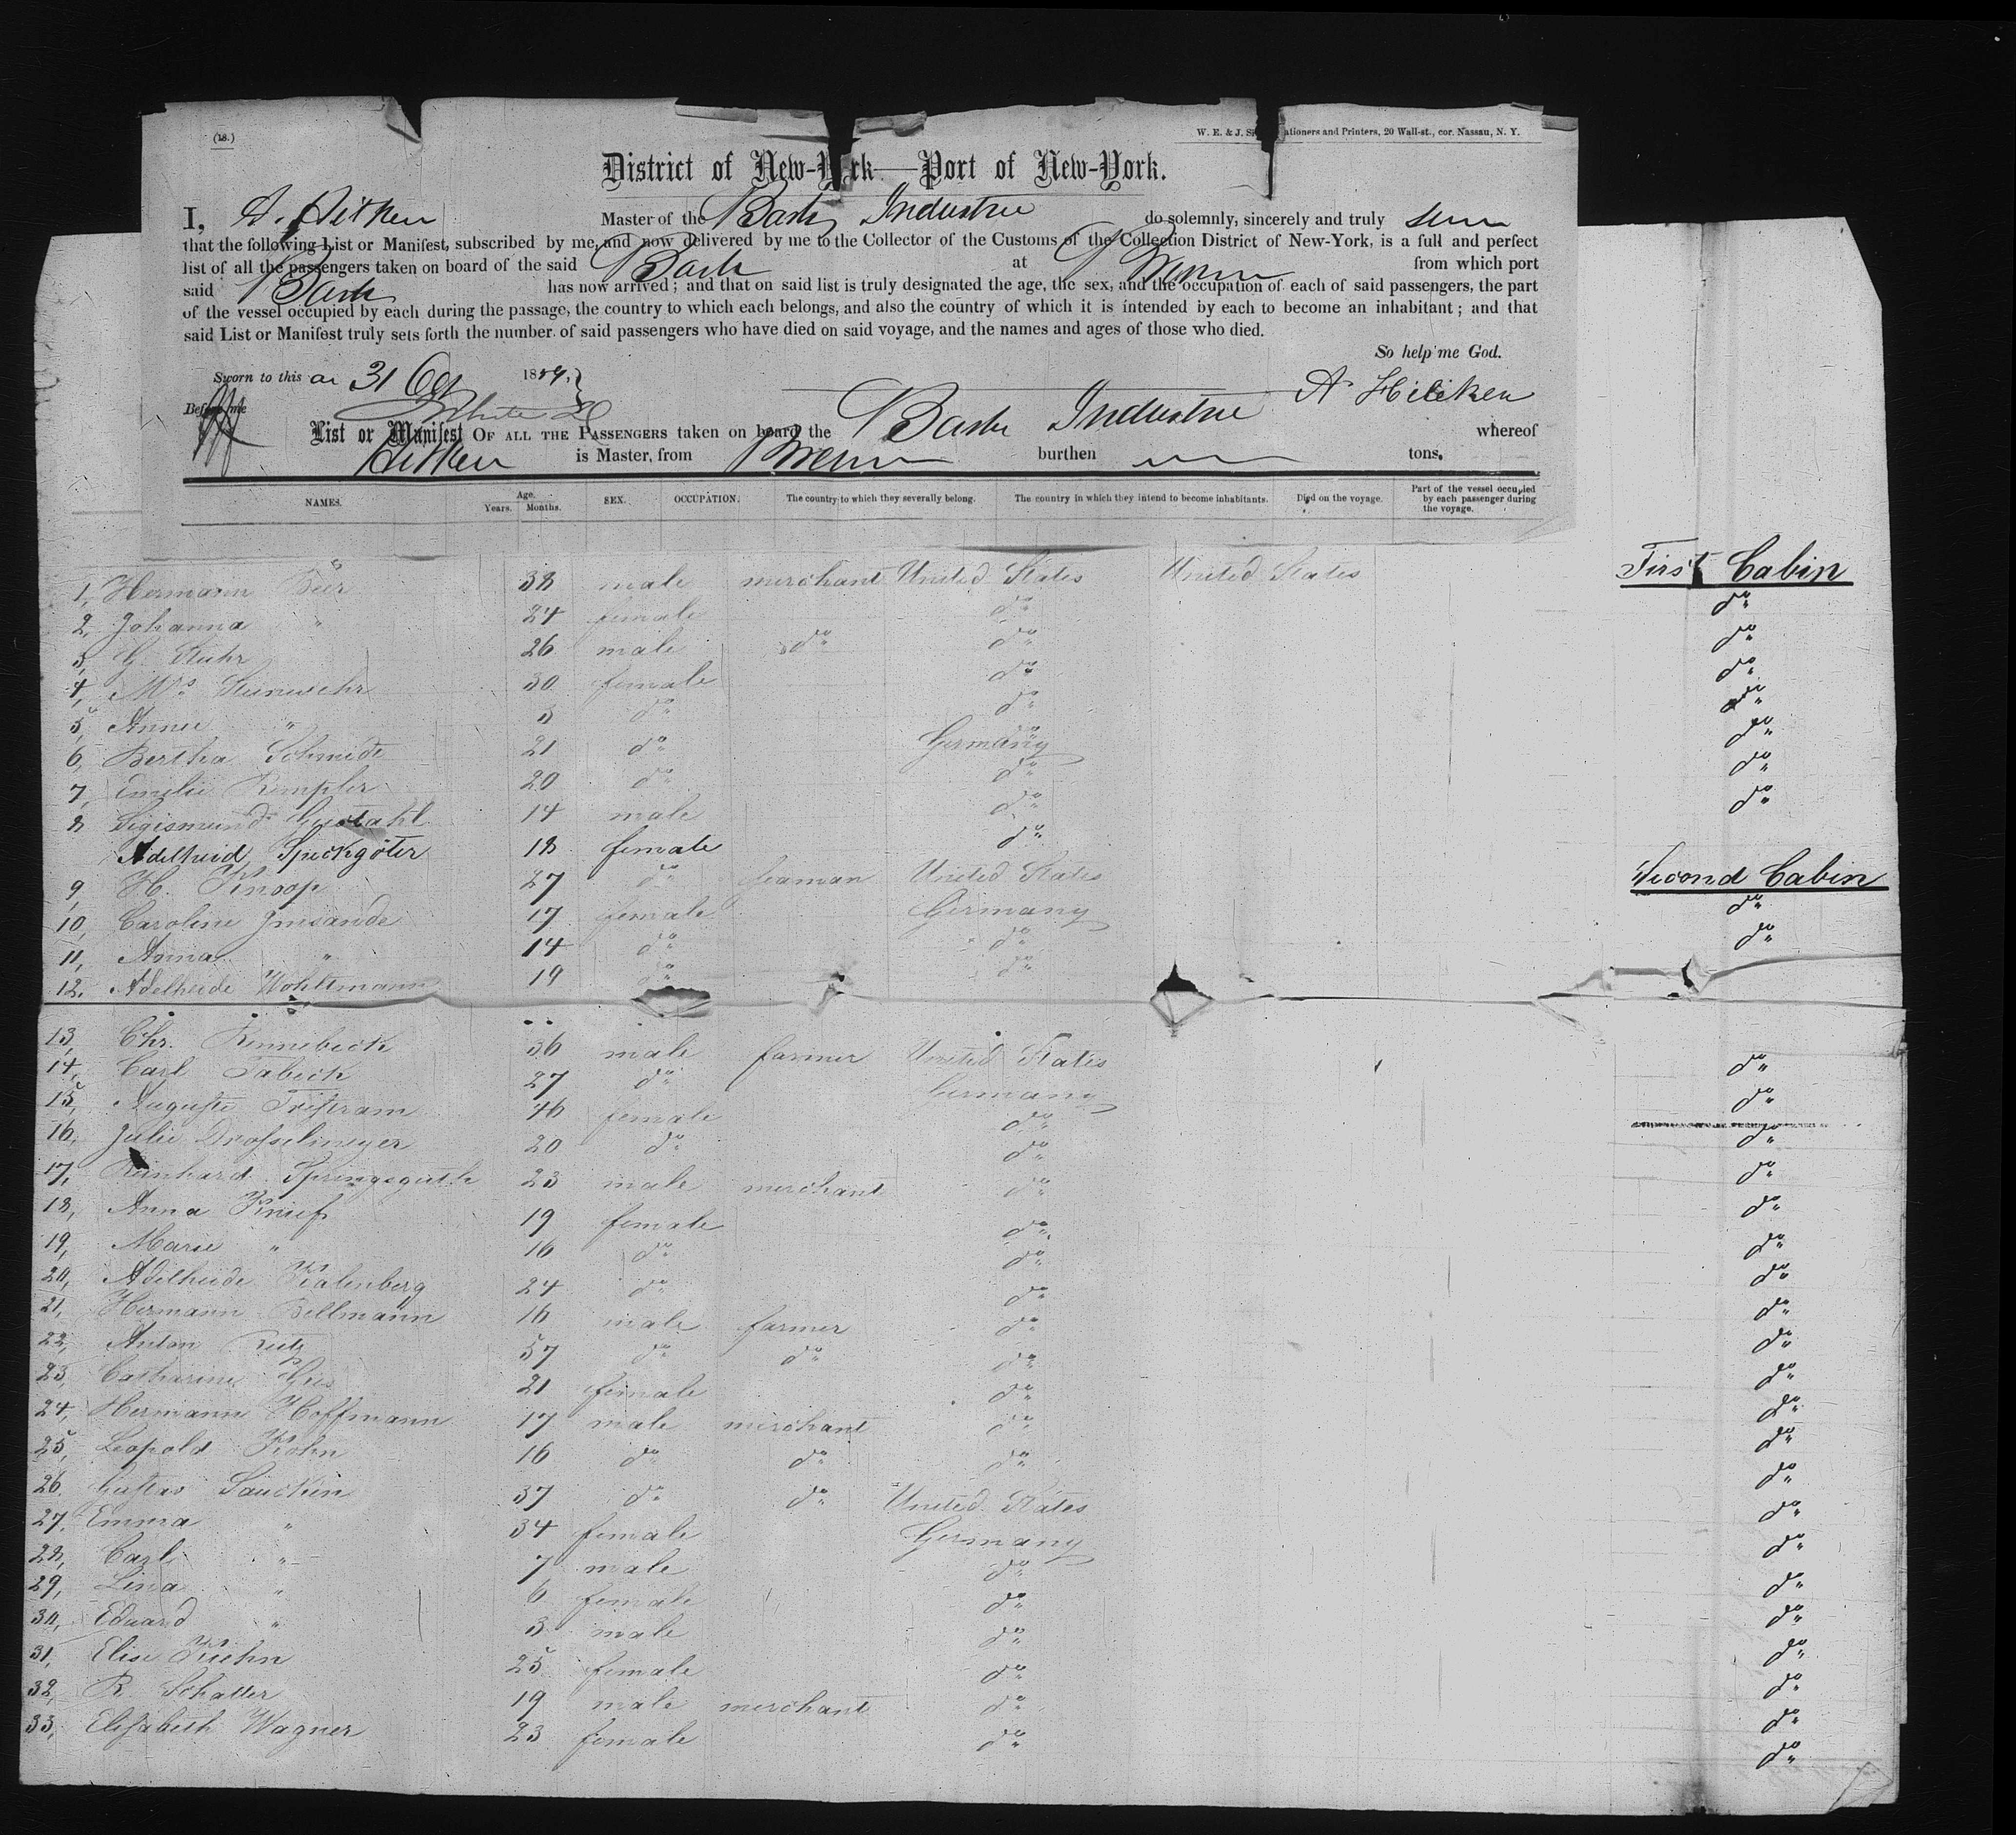 (18.) W. E. & J. S ationers and Printers, 20 Wall-st., cor. Nassau, N. Y.
District of New-Y rk—Port of New-York.
I, Master of the Bark Industrie do solemnly, sincerely and truly
that the following List or Manifest, subscribed by me, and now delivered by me to the Collector of the Customs of the Collection District of New-York, is a full and perfect
list of all the passengers taken on board of the said Bark at Bremen from which port
said Bark has now arrived; and that on said list is truly designated the age, the sex, and the occupation of each of said passengers, the part
of the vessel occupied by each during the passage, the country to which each belongs, and also the country of which it is intended by each to become an inhabitant; and that
said List or Manifest truly sets forth the number of said passengers who have died on said voyage, and the names and ages of those who died.
So help me God.
Sworn to this 31 1859.
Before me
List or Manifest OF ALL THE PASSENGERS taken on board the Bark Industrie whereof
is Master, from Bremen burthen tons.
NAMES. Age. Years. Months. SEX. OCCUPATION. The country to which they severally belong. The country in which they intend to become inhabitants. Died on the voyage. Part of the vessel occupied by each passenger during the voyage.
1, Hermann Beer 38 male merchant United States United States First Cabin
2, Johanna " 24 female do do
3, G. Stuhr 26 male do do do
4, Mrs Steinwehr 30 female do do
5, Annie " 3 do do do
6, Bertha Schmidt 21 do Germany do
7, Emilie Rempler 20 do do do
8 Sigismund 14 male do do
Adelheid Speckgöter 18 female do
9, H. Knoop 27 do seaman United States Second Cabin
10, Caroline Imsande 17 female Germany do
11, Anna " 14 do do do
12, Adelheide Wohltmann 19 do do
13, Chr. Rennebeck 36 male farmer United States do
14, Carl Tabeck 27 do Germany do
15, Auguste Tristram 46 female do do
16, Julie Drosselmeyer 20 do do do
17, Reinhard Springsguth 23 male merchant do do
18, Anna Knief 19 female do do
19, Marie " 16 do do do
20, Adelheide Kalenberg 24 do do do
21, Hermann Bellmann 16 male farmer do do
22, Anton 57 do do do do
23, Catharine Gies 21 female do do
24, Hermann Hoffmann 17 male merchant do do
25, Leopold Kohn 16 do do do do
26. Gustav Saucken 37 do do United States do
27, Emma " 34 female Germany do
28, Carl " 7 male do do
29, Lina " 6 female do do
30, Eduard " 3 male do do
31, Elise Kuhn 25 female do do
32, R. Schatter 19 male merchant do do
33, Elisabeth Wagner 23 female do do